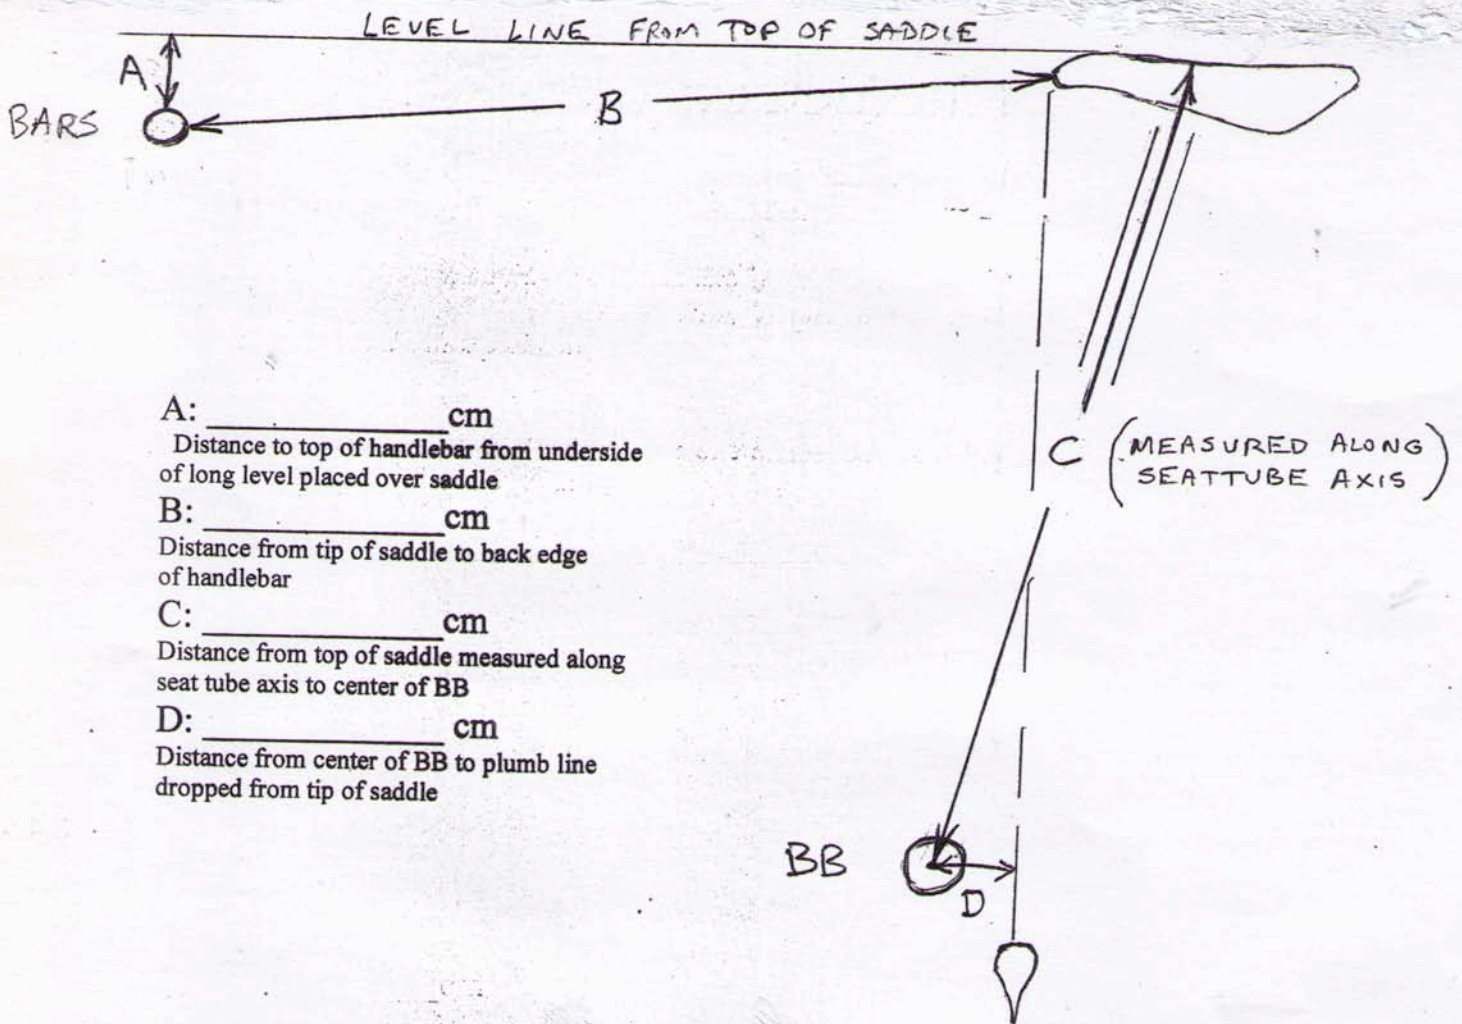 LEVEL LINE FROM TOP OF SADDLE
A
BARS
B
A: ____________cm
Distance to top of handlebar from underside
of long level placed over saddle
B: ____________cm
Distance from tip of saddle to back edge
of handlebar
C: ____________cm
Distance from top of saddle measured along
seat tube axis to center of BB
D: ____________cm
Distance from center of BB to plumb line
dropped from tip of saddle
C (MEASURED ALONG
SEATTUBE AXIS)
BB
D